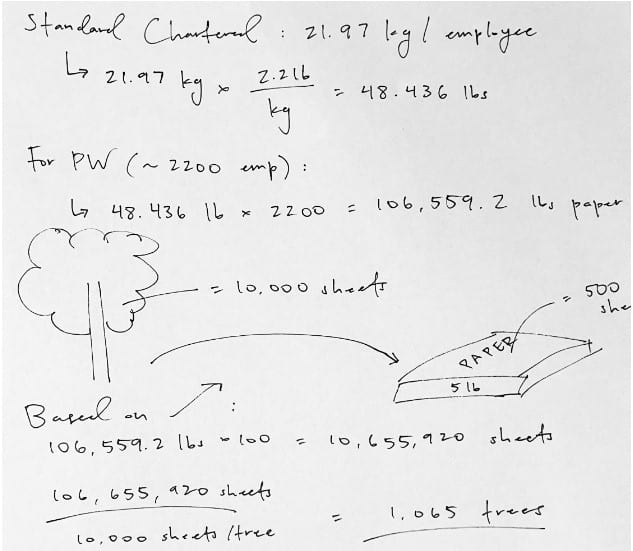 Standard Chartered : 21.97 kg / employee
↳ 21.97 kg × 2.2lb / kg = 48.436 lbs
For PW (~ 2200 emp) :
↳ 48.436 lb × 2200 = 106,559.2 lbs paper
= 10,000 sheets
= 500
she
PAPER
5 lb
Based on :
106,559.2 lbs × 100 = 10,655,920 sheets
106,655,920 sheets / 10,000 sheets/tree = 1,065 trees